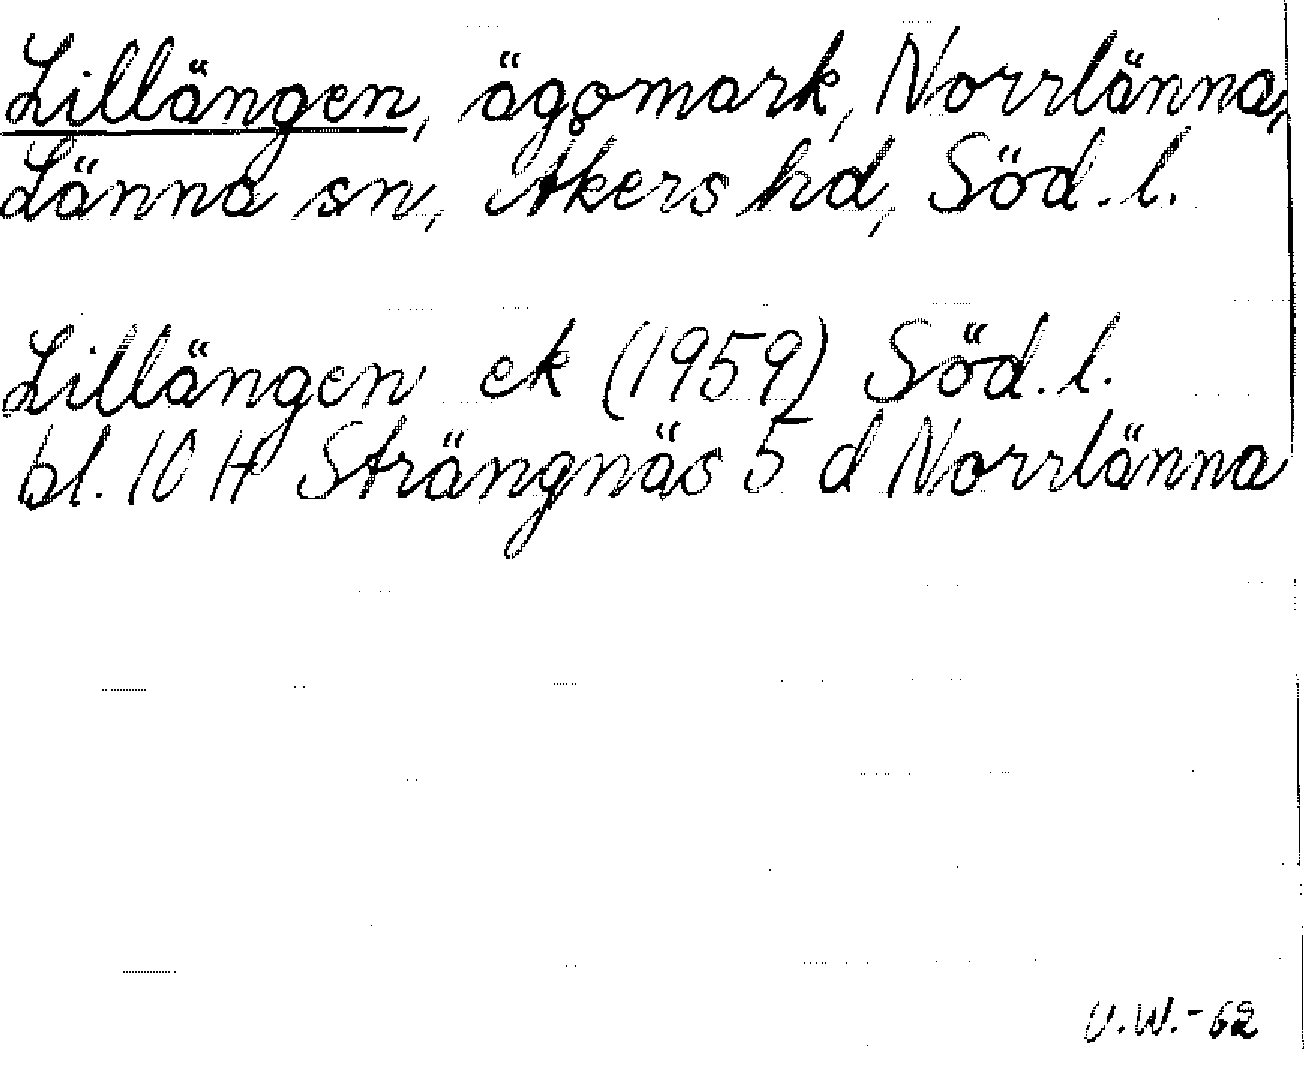 Lillängen, ägomark, Norrlänna,
Länna sn, Åkers hd, Söd. l.
Lillängen ek (1959) Söd. l.
bl. 10 H Strängnäs 5 d Norrlänna
V.W.-62